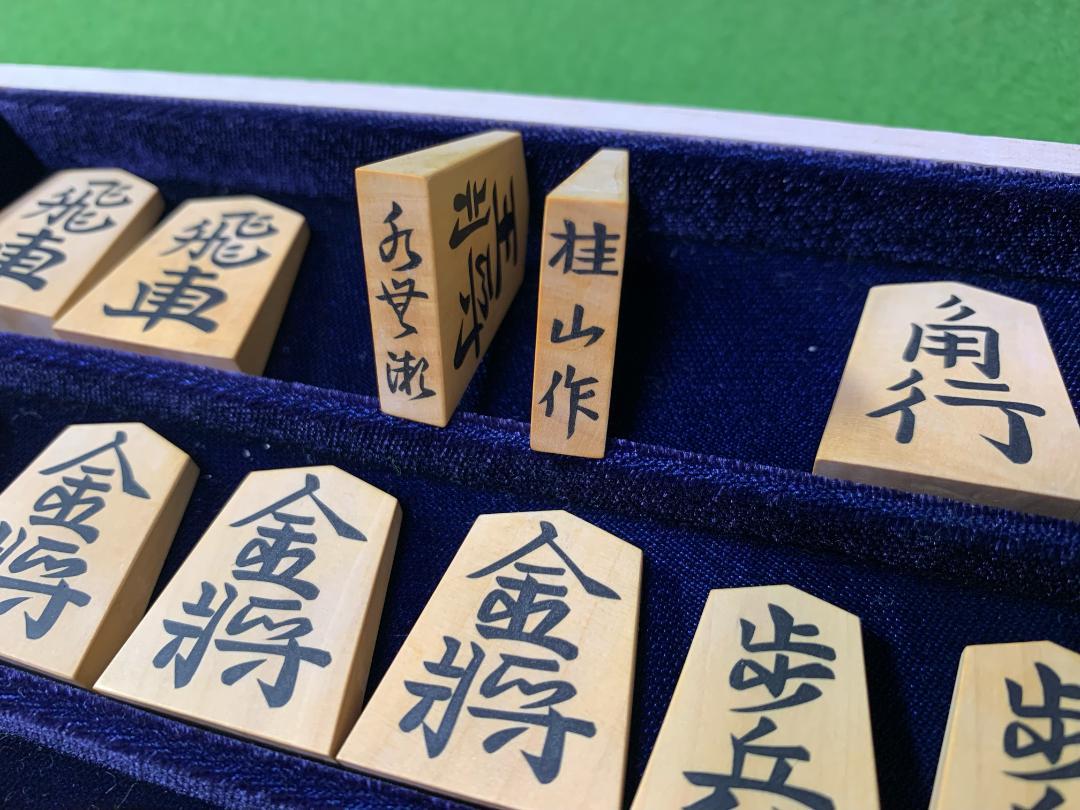 飛車
飛車
水無瀬
王将
桂山作
角行
金将
金将
金将
歩兵
歩